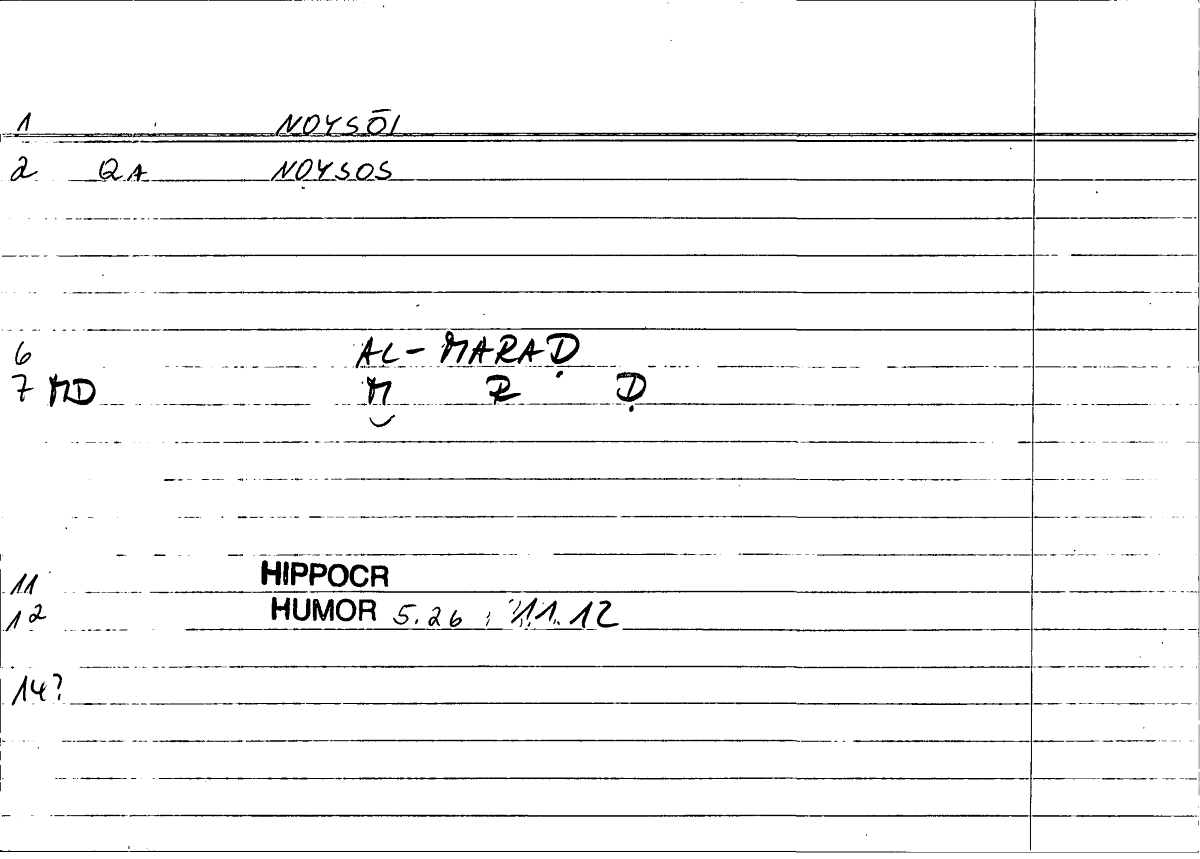 1 NOYSŌI
2 QA NOYSOS
6 AL-MARAḌ
7 MD M R Ḍ
11 HIPPOCR
12 HUMOR 5.26 ; 11.12
14?